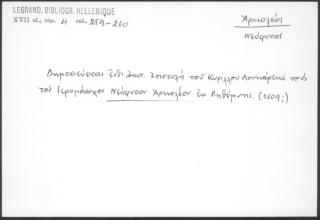 LEGRAND, BIBLIOGR. HELLENIQUE
XVII αἰ, τόμ. 4 σελ. 259-260
Ἀρκολέος
Νεόφυτος
Δημοσιεύεται ἐπιστολή τοῦ Κυρίλλου Λουκάρεως πρός
τόν Ἱερομόναχον Νεόφυτον Ἀρκολέον ἐκ Ρεθύμνης. (1609;)